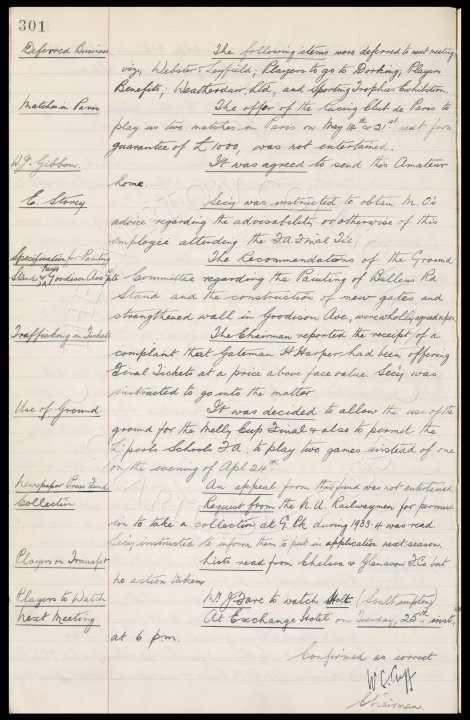 301
Deferred Business The following items were deferred to next meeting
viz, Webster & Leyfield; Players to go to Dorking; Players
Benefits; Weatherair Ltd, and Sporting Trophies Exhibition
Match in Paris The offer of the Racing Club de Paris to
play us two matches in Paris on May 14th & 21st next for a
guarantee of £1000, was not entertained.
Gibbon. It was agreed to send this Amateur
home.
E. Storey Secy was instructed to obtain M.O's
advice regarding the advisability or otherwise of this
employee attending the F.A. Final Tie.
Specification for Painting The Recommendations of the Ground
Stand & New Goodison Ave Gate Committee regarding the Painting of Bullens Rd
Stand and the construction of new gates and
strengthened wall in Goodison Ave, were wholly agreed upon
Trafficking in Tickets The Chairman reported the receipt of a
complaint that Gateman H Harper had been offering
Final Tickets at a price above face value. Secy was
instructed to go into the matter
Use of Ground. It was decided to allow the use of the
ground for the Melly Cup Final & also to permit the
L'pool Schools F.A. to play two games instead of one
on the evening of Apl 24th.
Newspaper Press Fund An appeal from this fund was not entertained.
Collection Request from the N.U. Railwaymen for permiss-
ion to take a collection at G. Pk during 1933-4 was read.
Secy instructed to inform them to put in application next season.
Players on Transfer Lists read from Chelsea & Glenavon F.Cs but
no action taken
Players to Watch W. J. Sare to watch Holt (Southampton)
Next Meeting At Exchange Hotel on Tuesday, 25th inst,
at 6 pm.
Confirmed as correct
W.C. Cuff
Chairman.